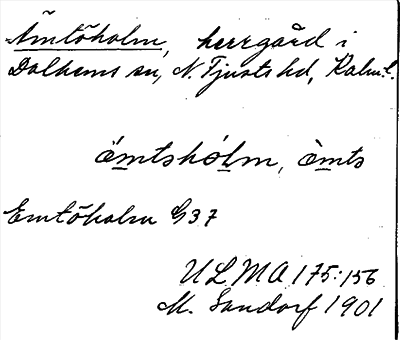 Ämtöholm, herrgård i
Dalhems sn, N. Tjusts hd, Kalm. l.
ómtshólm, òmts
Emtöholm G37
ULMA 175:156
M. Sandorf 1901